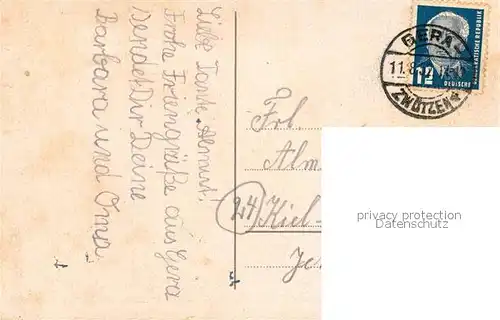 Liebe Tante Almut!
Frohe Feriengrüße aus Gera
sendet Dir Deine
Barbara und Oma
Frl.
Alm
(24) Kiel-
GERA-
11.8.
ZWÖTZEN
12
DEUTSCHE
privacy protection
Datenschutz